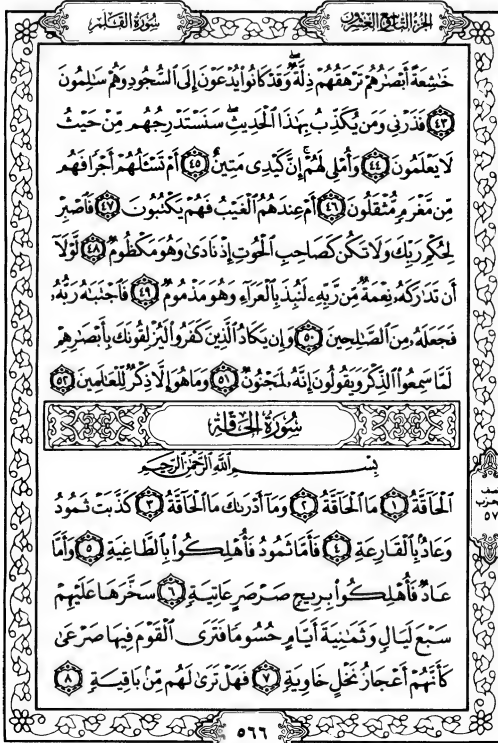 الجزء التاسع والعشرون
سورة القلم
خَٰشِعَةً أَبْصَٰرُهُمْ تَرْهَقُهُمْ ذِلَّةٌ ۖ وَقَدْ كَانُوا۟ يُدْعَوْنَ إِلَى ٱلسُّجُودِ وَهُمْ سَٰلِمُونَ
٤٣ فَذَرْنِى وَمَن يُكَذِّبُ بِهَٰذَا ٱلْحَدِيثِ ۖ سَنَسْتَدْرِجُهُم مِّنْ حَيْثُ
لَا يَعْلَمُونَ ٤٤ وَأُمْلِى لَهُمْ ۚ إِنَّ كَيْدِى مَتِينٌ ٤٥ أَمْ تَسْـَٔلُهُمْ أَجْرًا فَهُم
مِّن مَّغْرَمٍ مُّثْقَلُونَ ٤٦ أَمْ عِندَهُمُ ٱلْغَيْبُ فَهُمْ يَكْتُبُونَ ٤٧ فَٱصْبِرْ
لِحُكْمِ رَبِّكَ وَلَا تَكُن كَصَاحِبِ ٱلْحُوتِ إِذْ نَادَىٰ وَهُوَ مَكْظُومٌ ٤٨ لَّوْلَآ
أَن تَدَٰرَكَهُۥ نِعْمَةٌ مِّن رَّبِّهِۦ لَنُبِذَ بِٱلْعَرَآءِ وَهُوَ مَذْمُومٌ ٤٩ فَٱجْتَبَٰهُ رَبُّهُۥ
فَجَعَلَهُۥ مِنَ ٱلصَّٰلِحِينَ ٥٠ وَإِن يَكَادُ ٱلَّذِينَ كَفَرُوا۟ لَيُزْلِقُونَكَ بِأَبْصَٰرِهِمْ
لَمَّا سَمِعُوا۟ ٱلذِّكْرَ وَيَقُولُونَ إِنَّهُۥ لَمَجْنُونٌ ٥١ وَمَا هُوَ إِلَّا ذِكْرٌ لِّلْعَٰلَمِينَ ٥٢
سورة الحاقة
بِسْمِ ٱللَّهِ ٱلرَّحْمَٰنِ ٱلرَّحِيمِ
ٱلْحَآقَّةُ ١ مَا ٱلْحَآقَّةُ ٢ وَمَآ أَدْرَىٰكَ مَا ٱلْحَآقَّةُ ٣ كَذَّبَتْ ثَمُودُ
وَعَادٌۢ بِٱلْقَارِعَةِ ٤ فَأَمَّا ثَمُودُ فَأُهْلِكُوا۟ بِٱلطَّاغِيَةِ ٥ وَأَمَّا
عَادٌ فَأُهْلِكُوا۟ بِرِيحٍ صَرْصَرٍ عَاتِيَةٍ ٦ سَخَّرَهَا عَلَيْهِمْ
سَبْعَ لَيَالٍ وَثَمَٰنِيَةَ أَيَّامٍ حُسُومًا فَتَرَى ٱلْقَوْمَ فِيهَا صَرْعَىٰ
كَأَنَّهُمْ أَعْجَازُ نَخْلٍ خَاوِيَةٍ ٧ فَهَلْ تَرَىٰ لَهُم مِّنۢ بَاقِيَةٍ ٨
نصف
الحزب
٥٧
٥٦٦